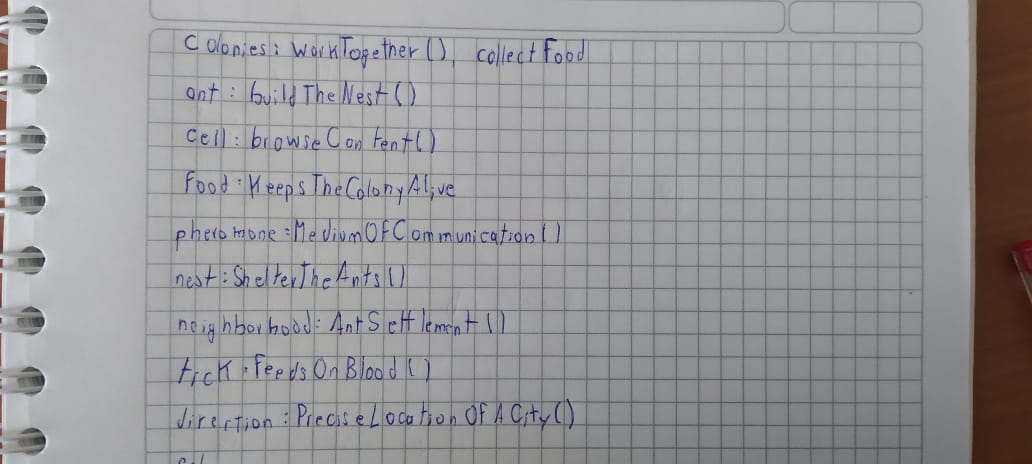 Colonies: WorkTogether(), collectFood
ant: buildTheNest()
cell: browseContent()
Food: KeepsTheColonyAlive
pheromone: MediumOfCommunication()
nest: ShelterTheAnts()
neighborhood: AntSettlement()
tick: FeedsOnBlood()
direction: PreciseLocationOfACity()